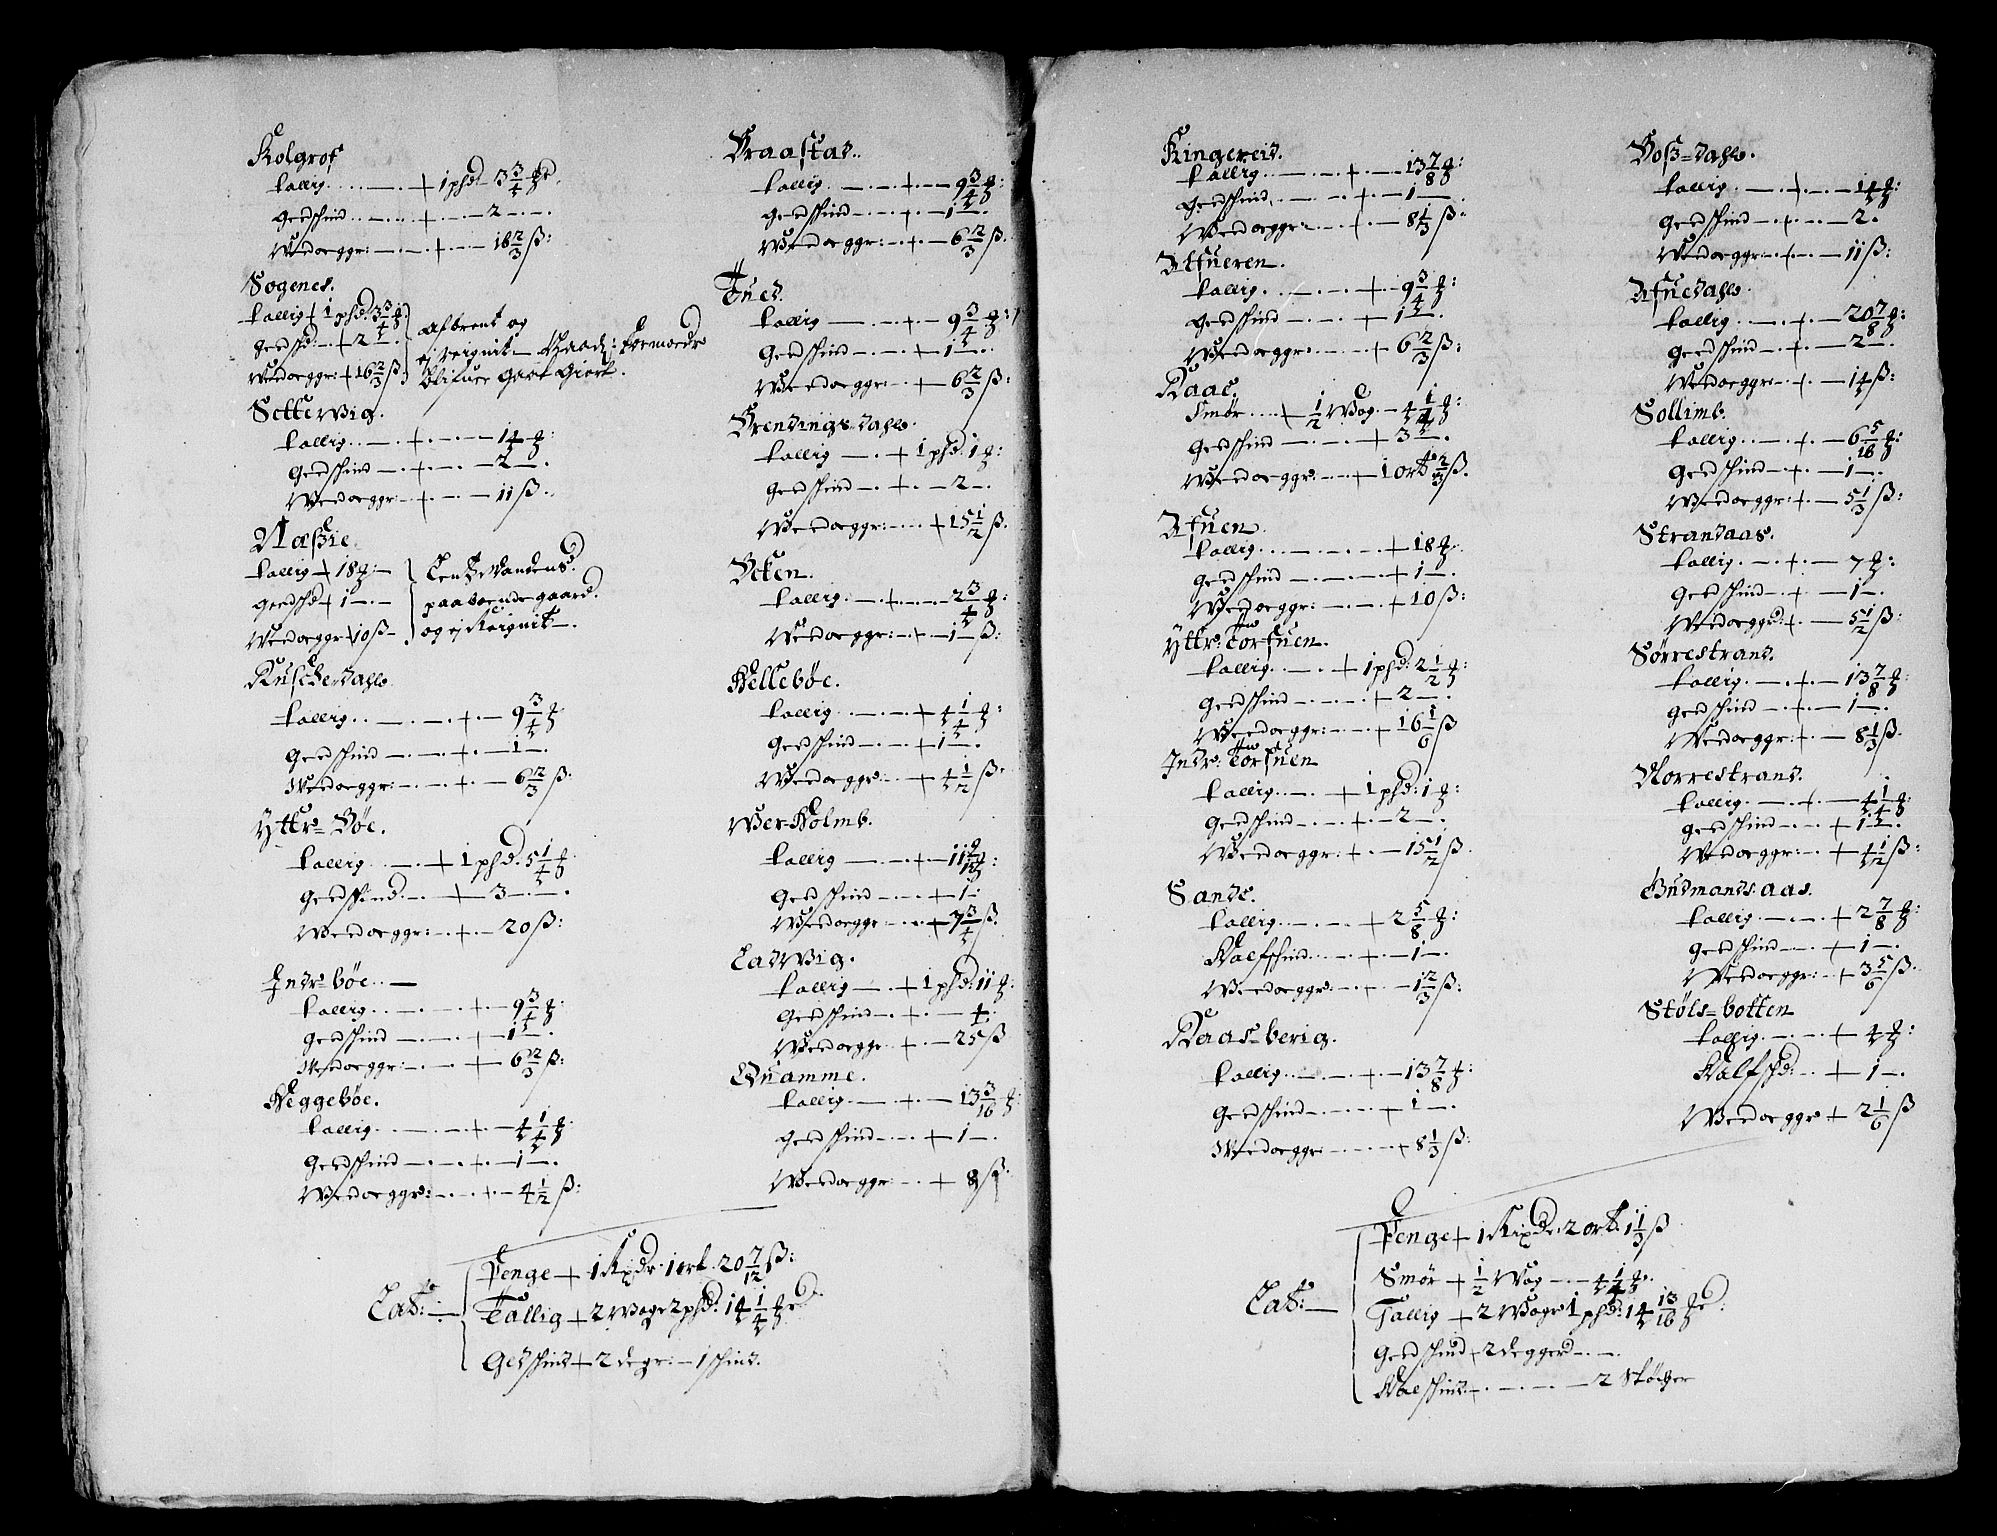 Kolgrof
tallig + 1 phd. 3 3/4 ℔
Gedschind + 2
Wedoeggr: + 16 2/3 ß:
Sogenes.
tallig + 1 phd. 3 3/4 ℔
Gedschd + 2
Wedoeggr: + 16 2/3 ß
afbrent og
ej Reignit
Settervig.
tallig + 14 ℔:
Gedschind + 2
Wedoeggr + 11 ß.
Næssie.
tallig + 18 ℔:
Gedschd + 1
Wedoeggr + 10 ß
paaboende gaard.
og ej Reignit
tallig + 9 3/4 ℔
Gedschind + 1
Wedoeggr: + 6 2/3 ß:
Yttr= Bøe.
tallig + 1 phd. 5 1/4 ℔
Gedschind + 3
Wedoeggr: + 20 ß:
Indr= bøe.
tallig + 9 3/4 ℔:
Gedschind + 1
Wedoeggr: + 6 2/3 ß:
Heggebøe.
tallig + 4 1/4 ℔:
Gedschind + 1
Wedoeggr: + 4 1/2 ß:
Braastad.
tallig + 9 3/4 ℔:
Gedschind + 1
Wedoeggr: + 6 2/3 ß.
Tued.
tallig + 9 3/4 ℔:
Gedschind + 1
Wedoeggr + 6 2/3 ß:
Brendings=dahle.
tallig + 1 phd: 1 ℔:
Gedschind + 2
Wedoeggr: + 15 1/2 ß.
tallig + 2 3/4 ℔:
Wedoeggr: + 1 ß:
Hellebøe.
tallig + 4 1/4 ℔:
Gedschind + 1
Wedoeggr + 4 1/2 ß:
Wer=Holmb.
tallig + 11 ℔:
Gedschind + 1
Wedoeggr + 7 3/4 ß.
Ladwig.
tallig + 1 phd: 11 ℔:
Gedschind + 4:
Wedoeggr + 25 ß
Quamme.
tallig + 13 3/16 ℔:
Gedschind + 1
Wedoeggr: + 8 ß:
Lat:
Penge + 1 Rixdr 1 ort. 20 7/12 ß:
Tallig + 2 Woge 2 phd: 14 1/4 ℔
Gedschind + 2 degr: 1 schind.
Ringereid.
tallig + 13 7/8 ℔:
Gedschind + 1
Wedoeggr + 8 1/3 ß:
Atfueren.
tallig + 9 3/4 ℔:
Gedschind + 1
Wedoeggr: + 6 2/3 ß:
Smør + 1/2 Wog 4 1/4 ℔:
Gedschind + 3
Wedoeggr: + 1 ort 2/3 ß.
Afuen.
tallig + 18 ℔:
Gedschind + 1
Wedoeggr: + 10 ß:
Yttr: Torfuen.
tallig + 1 phd: 2 1/2 ℔:
Gedschind + 2
Wedoeggr: + 16 1/6 ß
Indr: Torfuen
tallig + 1 phd: 1 ℔:
Gedschind + 2
Wedoeggr: + 15 1/2 ß.
Sande.
tallig + 2 5/8 ℔:
Kalfschind + 1
Wedoeggr: + 1 2/3 ß:
Haas=berig.
tallig + 13 7/8 ℔:
Gedschind + 1
Wedoeggr + 8 1/3 ß:
Boss=dahle.
tallig + 14 ℔:
Gedschind + 2.
Wedoeggr: + 11 ß:
Afuedahle.
tallig + 20 7/8 ℔:
Gedschind + 2
Wedoeggr: + 14 ß:
Sollimb.
tallig + 6 5/16 ℔:
Gedschind + 1
Wedoeggr: + 5 1/3 ß:
Strandaas.
tallig + 7 ℔:
Gedschind + 1
Wedoeggr: + 5 1/2 ß:
Sørrestrand.
tallig + 13 7/8 ℔:
Gedschind + 1
Wedoeggr: + 8 1/3 ß.
Norrestrand.
tallig + 4 1/4 ℔:
Gedschind + 1
Wedoeggr: + 4 1/2 ß:
Gudmands.aas.
tallig + 2 7/8 ℔:
Gedschind + 1
Wedoeggr: + 3 5/6 ß.
Støls=botten
tallig + 4 ℔:
Kalfschd: + 1
Wedoeggr + 2 1/6 ß
Lat:
Penge + 1 Rixdr 2 ort. 1 1/3 ß
Smør + 1/2 Wog 4 1/4 ℔.
Tallig + 2 Woger 1 phd: 14 13/16 ℔
Gedschind + 2 degger
Kalfschind 2 Støcher